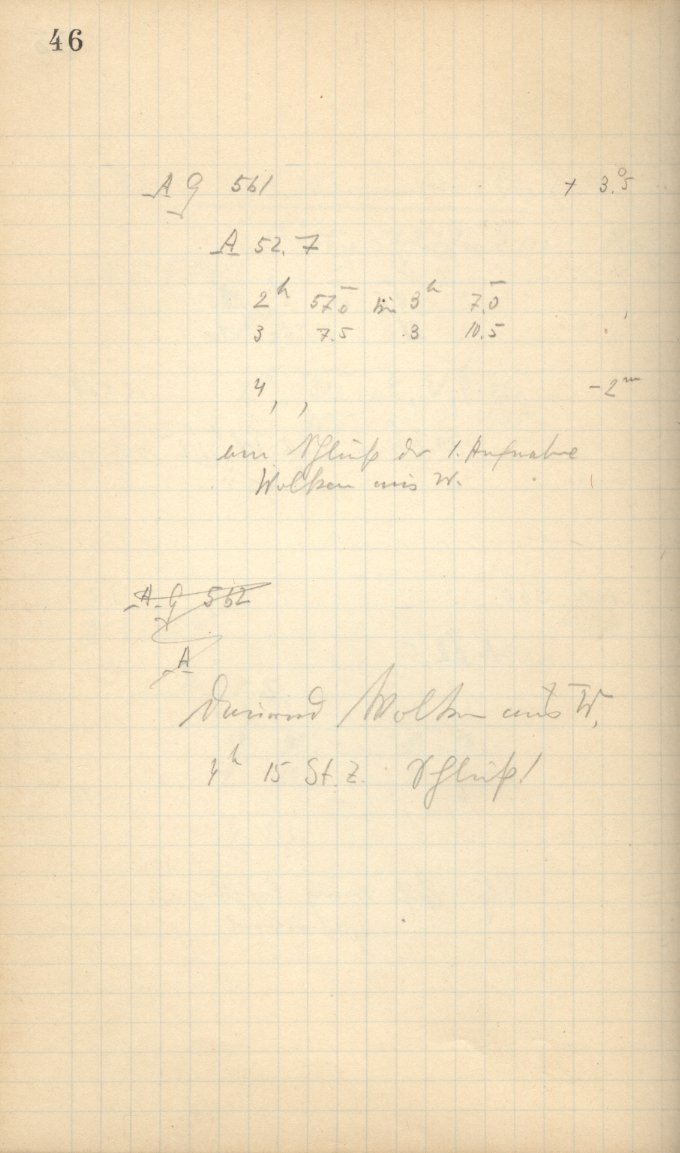 46
A G 561 + 3.°5
A 52.7
2h 57.0 bis 3h 7.0
3 7.5 3 10.5
4, , -2m
am Schluß der 1. Aufnahme
Wolken aus W.
A G 562
A
Dauernd Wolken aus W.
4h 15 St. Z. Schluß!